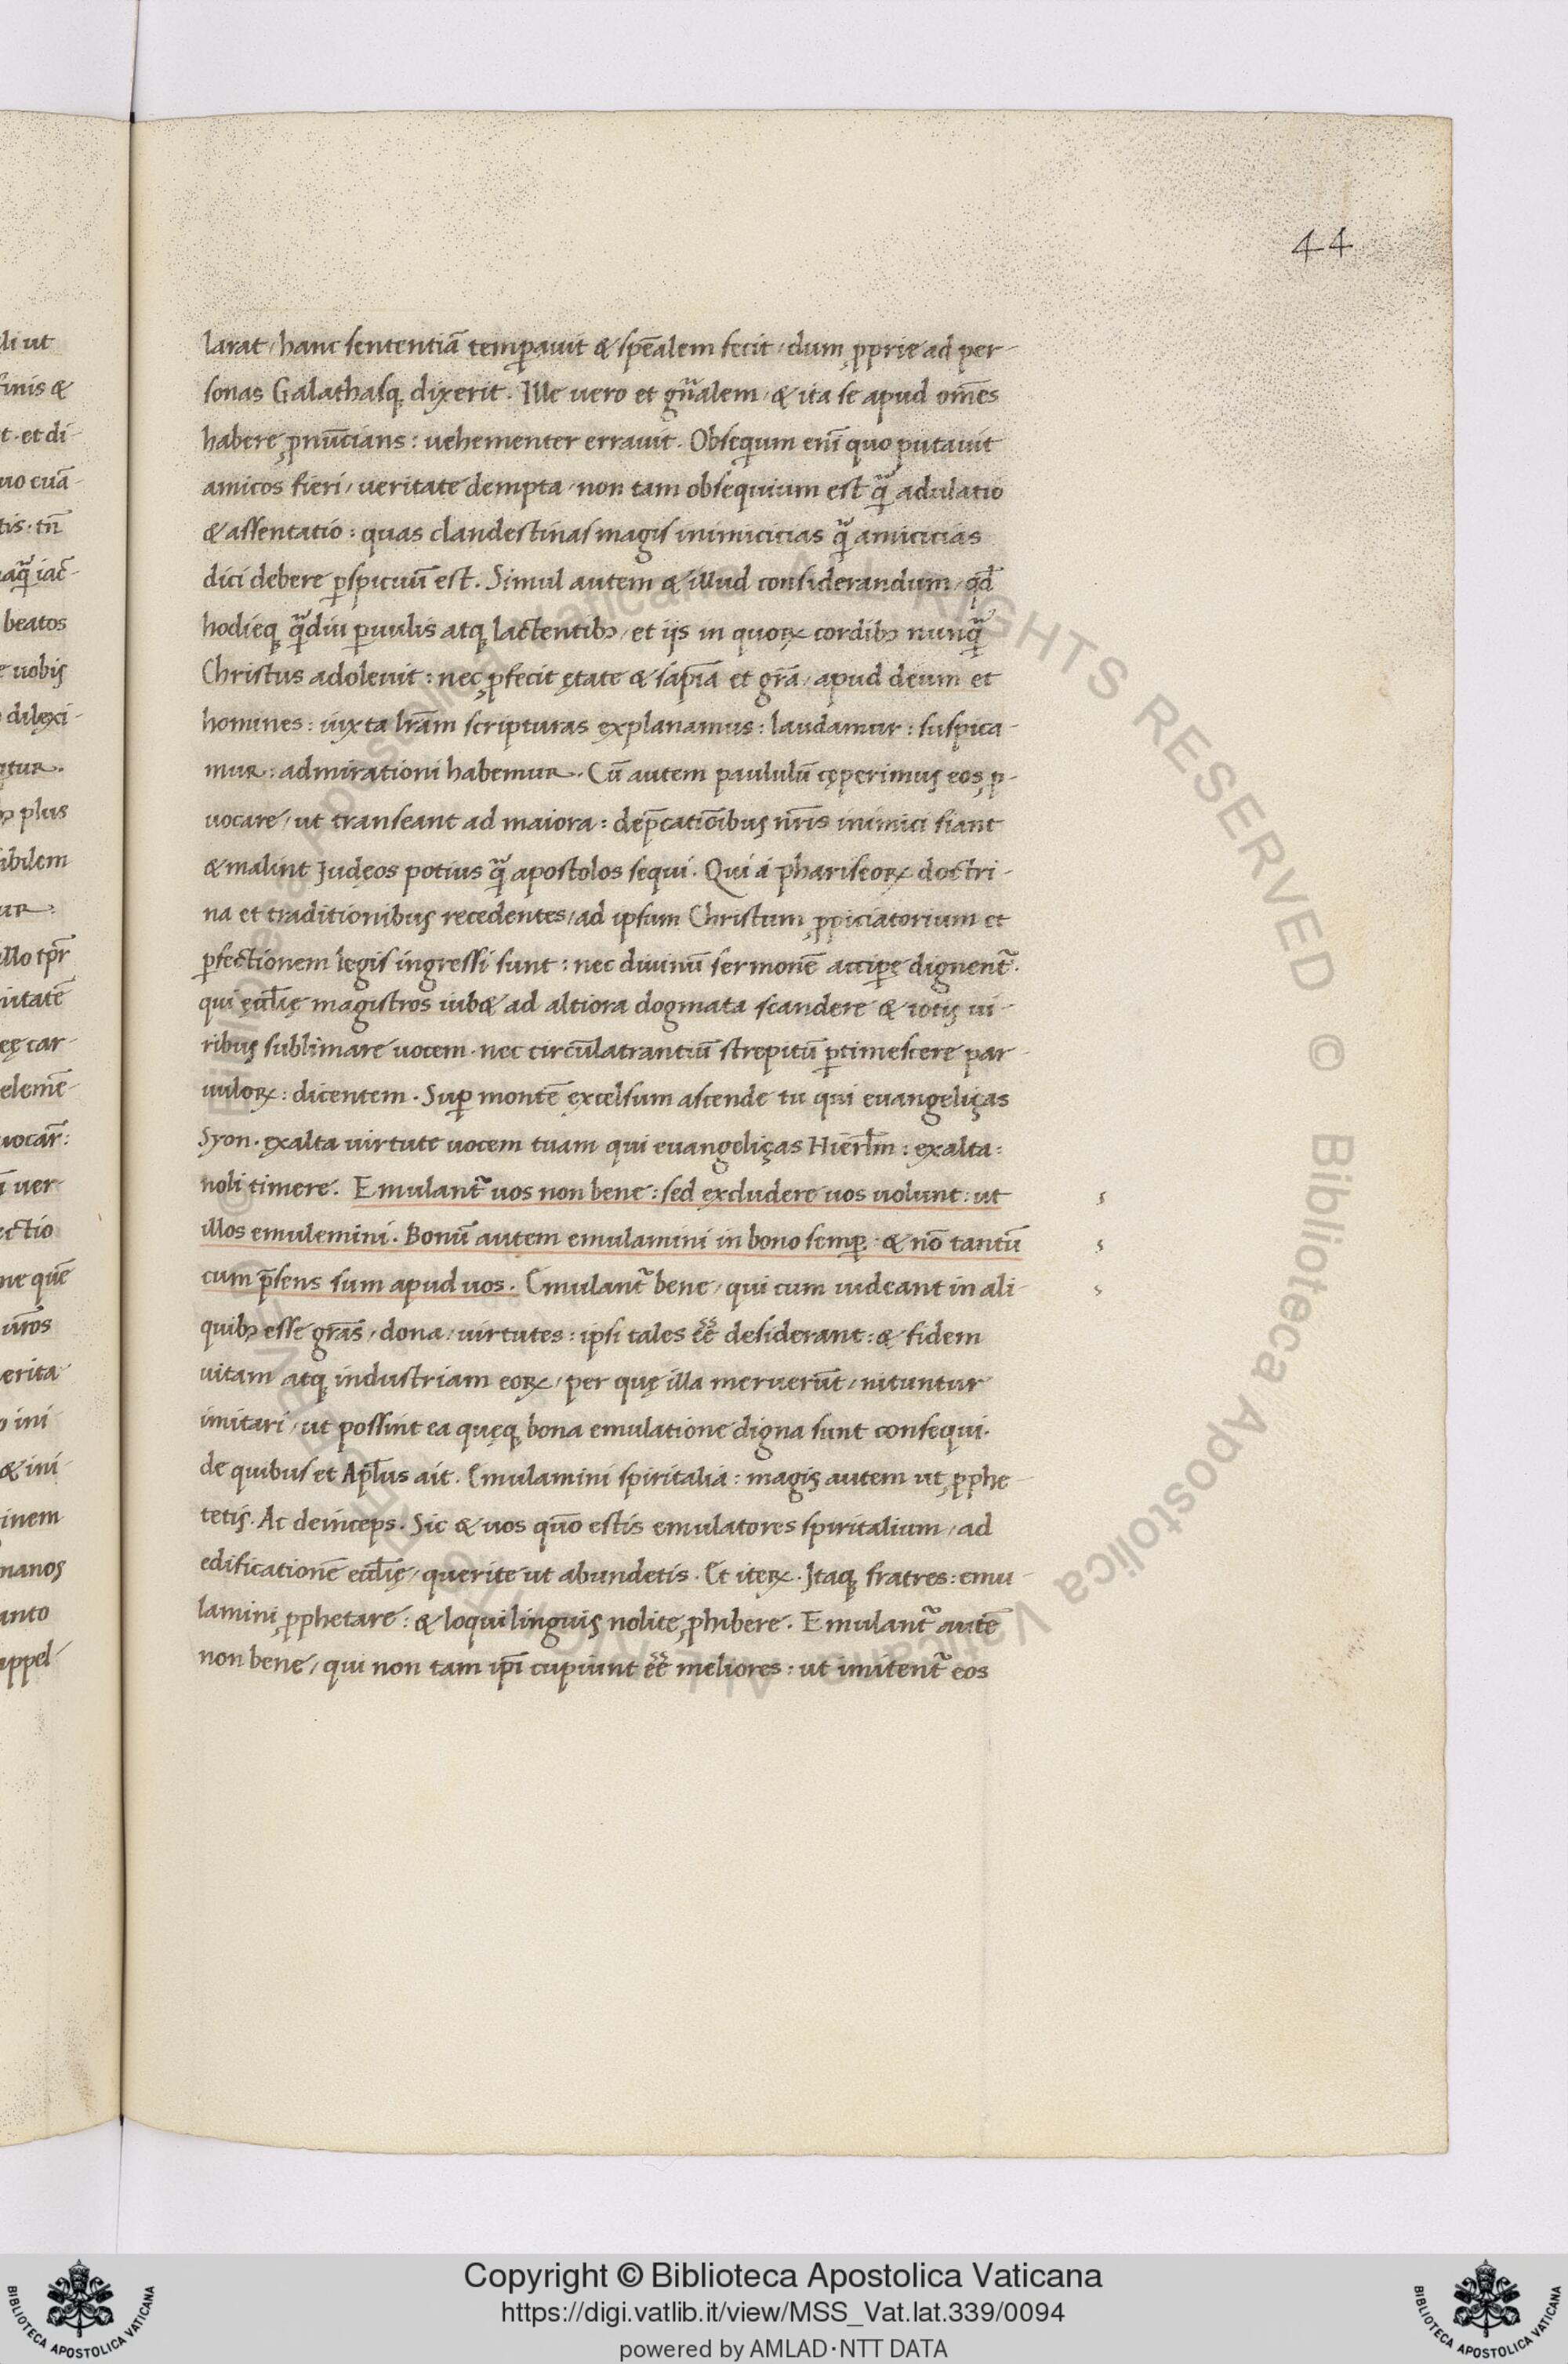 44
larat, hanc sententiā temꝑauit & spēalem fecit, dum ꝓprie ad per-
sonas Galathasq; dixerit. Ille uero et gn̄alem, & ita se apud om̄es
habere ꝓnūcians: uehementer errauit. Obseqium eni᷃ quo putauit
amicos fieri, ueritate dempta, non tam obsequium est q̃ adulatio
& assentatio: quas clandestinas magis inimicicias q̃ amicicias
dici debere ꝑspicuū est. Simul autem & illud considerandum, qd̄
hodieq; q̃diu ꝑuulis atq; lactentibꝰ, et ijs in quoꝝ cordibꝰ nunq̃
Christus adoleuit: nec ꝓfecit ętate & sapīa et gr̄a, apud deum et
homines: iuxta lr̄am scripturas explanamus: laudamur: suspica-
mur: admirationi habemur. Cū autem paululū cęperimus eos ꝓ-
uocare, ut transeant ad maiora: dep̄catiōibus nr̄is inimici fiant
& malint Judęos potius q̃ apostolos sequi. Qui á phariseoꝝ doctri-
na et traditionibus recedentes, ad ipsum Christum ꝓpiciatorium et
ꝑfectionem legis ingressi sunt: nec diuinū sermonē acciꝑe dignent᷑.
qui ęccl̄ię magistros iub& ad altiora dogmata scandere & totis ui-
ribus sublimare uocem. nec circūlatrantiū strepitū ꝑtimescere par-
uuloꝝ: dicentem. Suꝑ montē excelsum ascende tu qui euangeliças
Syon. exalta uirtute uocem tuam qui euangeliças Hierl̄m: exalta:
noli timere. Emulant᷑ uos non bene: sed excludere uos uolunt: ut
illos emulemini. Bonū autem emulamini in bono semꝑ: & nō tantū
cum p̄sens sum apud uos. Emulant᷑ bene, qui cum uideant in ali-
quibꝰ esse gr̄as, dona, uirtutes: ipsi tales ēē desiderant: & fidem
uitam atq; industriam eoꝝ, per quę illa meruerūt, nituntur
imitari, ut possint ea quęq; bona emulatione digna sunt consequi.
de quibus et Apl̄us ait. Emulamini spiritalia: magis autem ut ꝓphe-
tetis. Ac deinceps. Sic & uos quō estis emulatores spiritalium, ad
edificationē eccl̄ię, querite ut abundetis. Et iteꝝ. Itaq; fratres: emu-
lamini ꝓphetare: & loqui linguis nolite ꝓhibere. Emulant᷑ autē
non bene, qui non tam ip̄i cupiunt ēē meliores: ut imitent᷑ eos
Copyright © Biblioteca Apostolica Vaticana
https://digi.vatlib.it/view/MSS_Vat.lat.339/0094
powered by AMLAD·NTT DATA